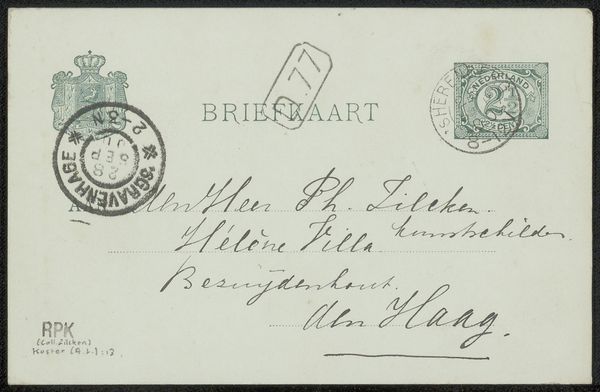 D.77
BRIEFKAART
NEDERLAND
2½
2½ CENT
'SGRAVENHAGE
2-3N
28
SEP
Aan den Heer Ph. Zilcken
kunstschilder
Hélène Villa
Bezuijdenhout.
den Haag.
RPK
(Coll. Zilcken)
Koster (A.L.):13